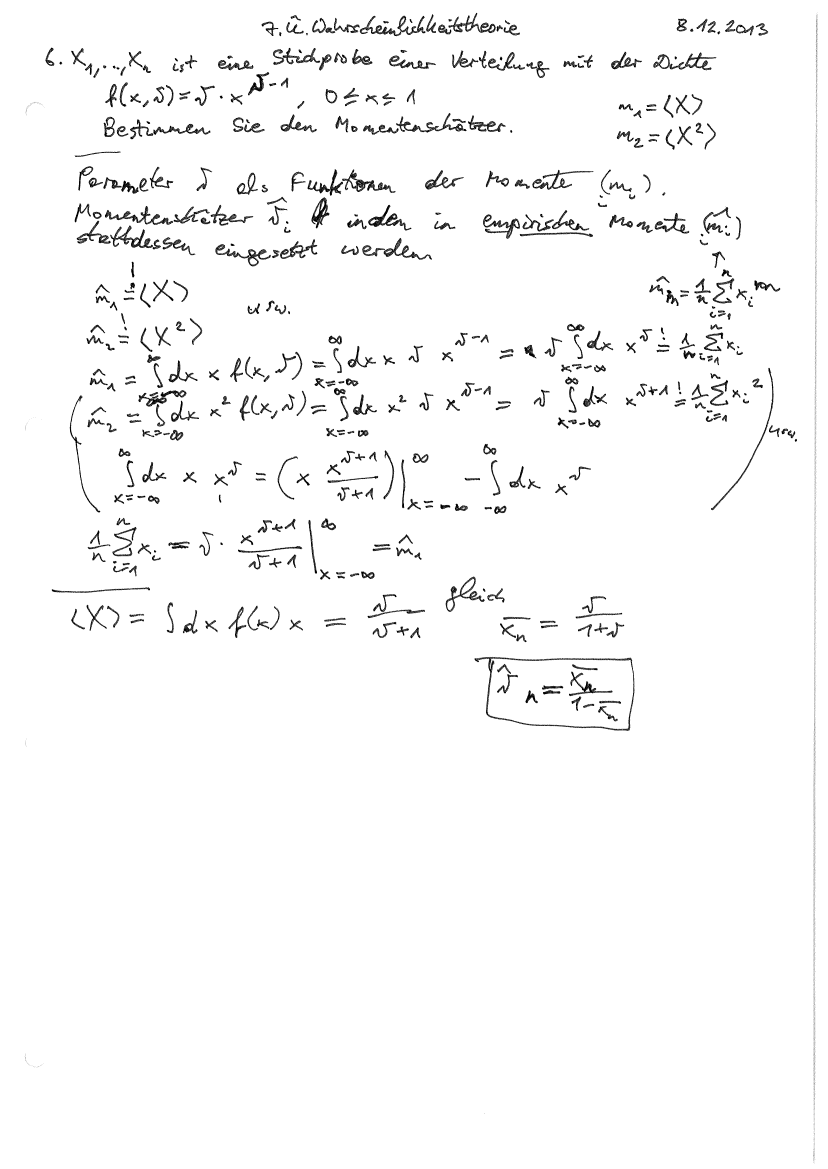 7. Ü. Wahrscheinlichkeitstheorie 8.12.2013
6. X₁,...,Xₙ ist eine Stichprobe einer Verteilung mit der Dichte
f(x,ϑ)=ϑ·x^(ϑ-1), 0≤x≤1 m₁=⟨X⟩
Bestimmen Sie den Momentenschätzer. m₂=⟨X²⟩
Parameter ϑ als Funktionen der Momente (mᵢ)ᵢ.
Momentenschätzer ϑ̂ᵢ indem in empirischen Momente ᵢ(m̂ᵢ)
stattdessen eingesetzt werden
m̂₁ =! ⟨X⟩ usw. m̂ₘ = 1/n ∑_(i=1)^n xᵢ^m
m̂₂ =! ⟨X²⟩
m̂₁ = ∫_(x=-∞)^∞ dx x f(x,ϑ) = ∫_(x=-∞)^∞ dx x ϑ x^(ϑ-1) = ϑ ∫_(x=-∞)^∞ dx x^ϑ =! 1/n ∑_(i=1)^n xᵢ
(m̂₂ = ∫_(x=-∞)^∞ dx x² f(x,ϑ) = ∫_(x=-∞)^∞ dx x² ϑ x^(ϑ-1) = ϑ ∫_(x=-∞)^∞ dx x^(ϑ+1) =! 1/n ∑_(i=1)^n xᵢ²) usw.
∫_(x=-∞)^∞ dx x x^ϑ = (x x^(ϑ+1)/(ϑ+1))|_(x=-∞)^∞ - ∫_(-∞)^∞ dx x^ϑ
1/n ∑_(i=1)^n xᵢ = ϑ · x^(ϑ+1)/(ϑ+1) |_(x=-∞)^∞ = m̂₁
⟨X⟩ = ∫dx f(x) x = ϑ/(ϑ+1) gleich x̄ₙ = ϑ/(1+ϑ)
ϑ̂ₙ = x̄ₙ/(1-x̄ₙ)